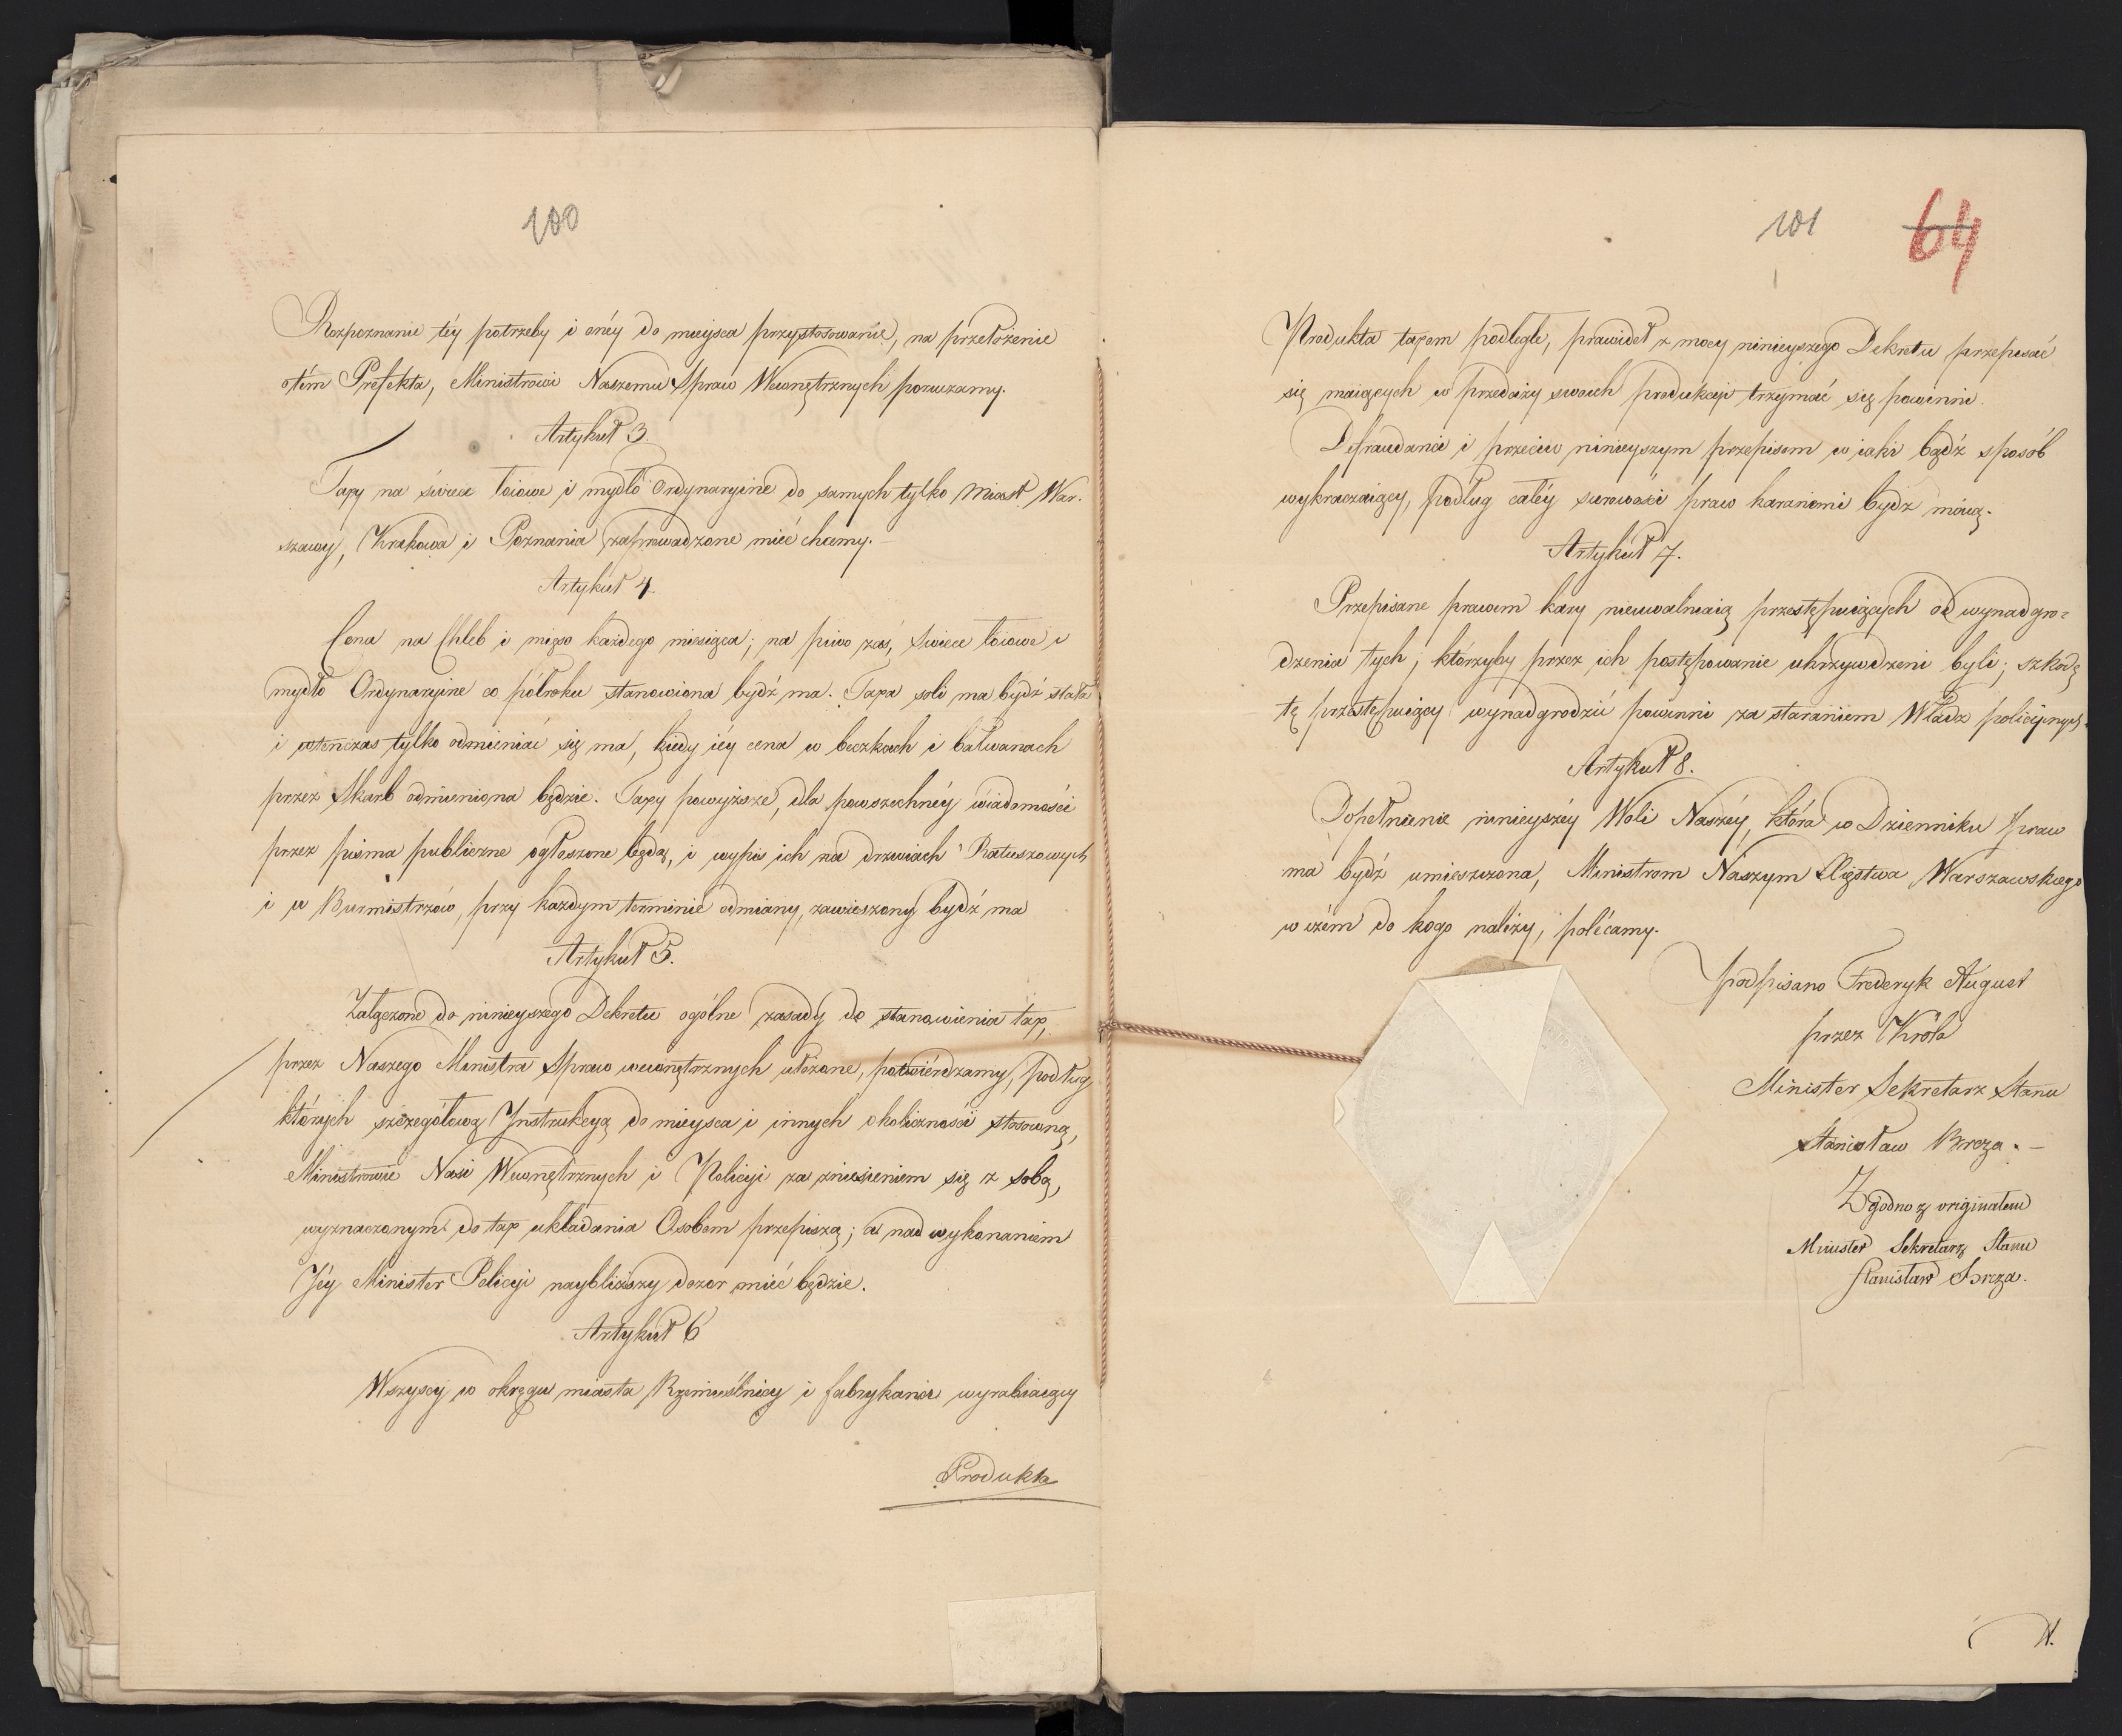 100
Rozpoznanie téy potrzeby i onéy do mieysca przystosowanie, na przełożenie
otém Prefekta, Ministrowi Naszemu Spraw Wewnętrznych poruczamy.
Artykuł 3.
Taxy na świece łoiowe i mydło Ordynaryine do samych tylko Miast War-
szawy, Krakowa i Poznania zaprowadzone mieć chcemy.
Artykuł 4.
Cena na Chleb i mięso każdego miesiąca; na piwo zaś, świece łoiowe i
mydło Ordynaryine co półroku stanowiona bydź ma. Taxa soli ma bydź stała
i wtenczas tylko odmieniać się ma, kiedy iéy cena w beczkach i bałwanach
przez Skarb odmieniona będzie. Taxy powyższe, dla powszechnéy wiadomości
przez pisma publiczne ogłoszone będą, i wypis ich na drzwiach Ratuszowych
i u Burmistrzów, przy każdym terminie odmiany, zawieszony bydź ma
Artykuł 5.
Załączone do ninieyszego Dekretu ogólne zasady do stanowienia tax,
przez Naszego Ministra Spraw wewnętrznych ułożone, potwiérdzamy, podług
których szczegółową Instrukcyą do mieysca i innych okoliczności stosowną,
Ministrowie Nasi Wewnętrznych i Policyi za zniesieniem się z sobą,
wyznaczonym do tax układania Osobom przepiszą; a nad wykonaniem
Jéy Minister Policyi naybliższy dozor mieć będzie.
Artykuł 6
Wszyscy w okręgu miasta Rzemieślnicy i fabrykanci wyrabiaiący
Produkta
101 64
Produkta taxom podległe, prawideł z mocy ninieyszego Dekretu przepisać
się maiących w przedaży swoich produkcyi trzymać się powinni.
Defraudanci i przeciw ninieyszym przepisom w iaki bądź sposób
wykraczaiący, podług całéy surowości praw karanemi bydź maią.
Artykuł 7.
Przepisane prawem kary nieuwalniaią przestępuiących od wynadgro-
dzenia tych, którzyby przez ich postępowanie ukrzywdzeni byli; szkodę
tę przestępuiący wynadgrodzić powinni za staraniem Władz policyinych.
Artykuł 8.
Dopełnienie ninieyszéy Woli Naszéy, która w Dzienniku praw
ma bydź umieszczona, Ministrom Naszym Xięstwa Warszawskiego
w czém do kogo należy, polécamy.
podpisano Frederyk August
przez Króla
Minister Sekretarz Stanu
Stanisław Breza. –
Zgodno z originałem
Minister Sekretarz Stanu
Stanisław Breza.